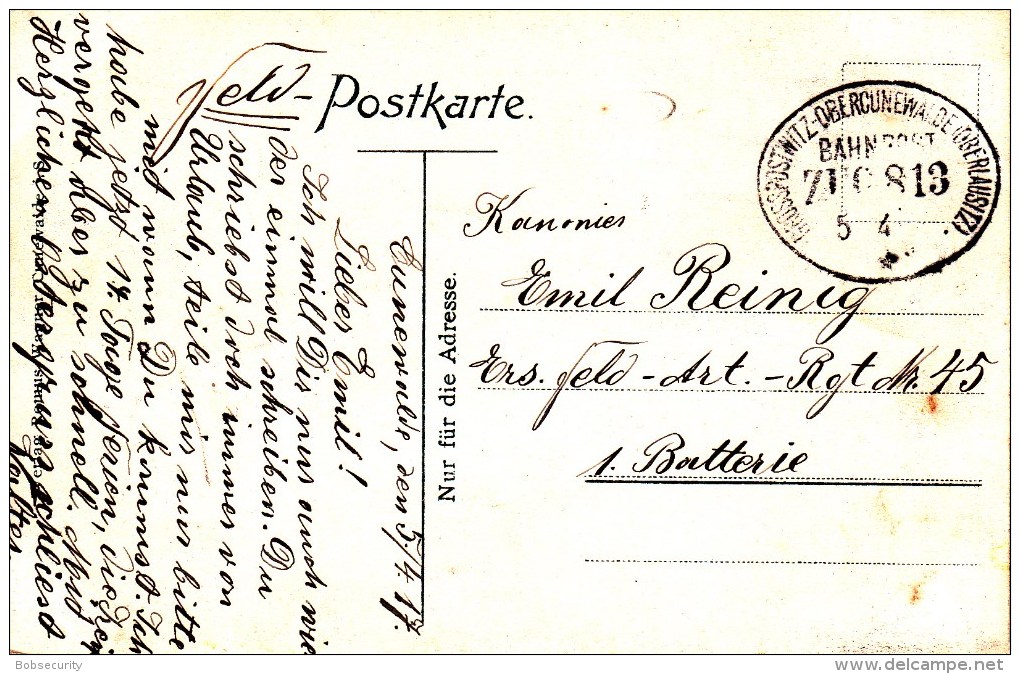 Feld-Postkarte.
Cunewalde, den 5/4.17.
Lieber Emil!
Ich will Dir nur auch wie
der einmal schreiben. Du
schriebst doch immer von
Urlaub, teile mir nur bitte
mit wann Du kommst. Ich
habe jetzt 14. Tage Ferien, die Zeit
vergeht aber zu schnell. Mit
Herzlichen schliest
Walter
Nur für die Adresse.
Kanonier
Emil Reinig
Ers. Feld-Art.-Rgt Nr. 45
1. Batterie
GROSSPOSTWITZ-OBERCUNEWALDE (OBERLAUSITZ)
BAHNPOST
ZUG 813
5 4
Bobsecurity
delcampe.net